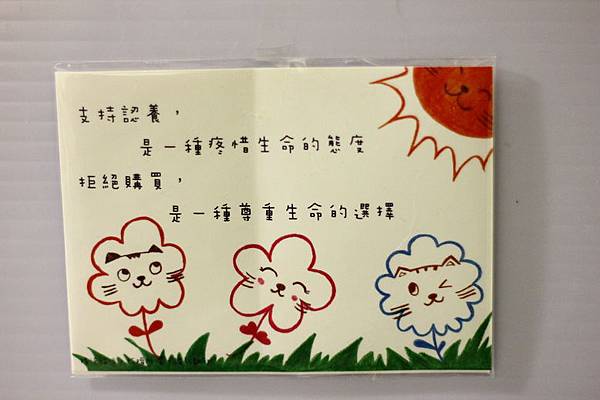 支持認養，
是一種疼惜生命的態度
拒絕購買，
是一種尊重生命的選擇